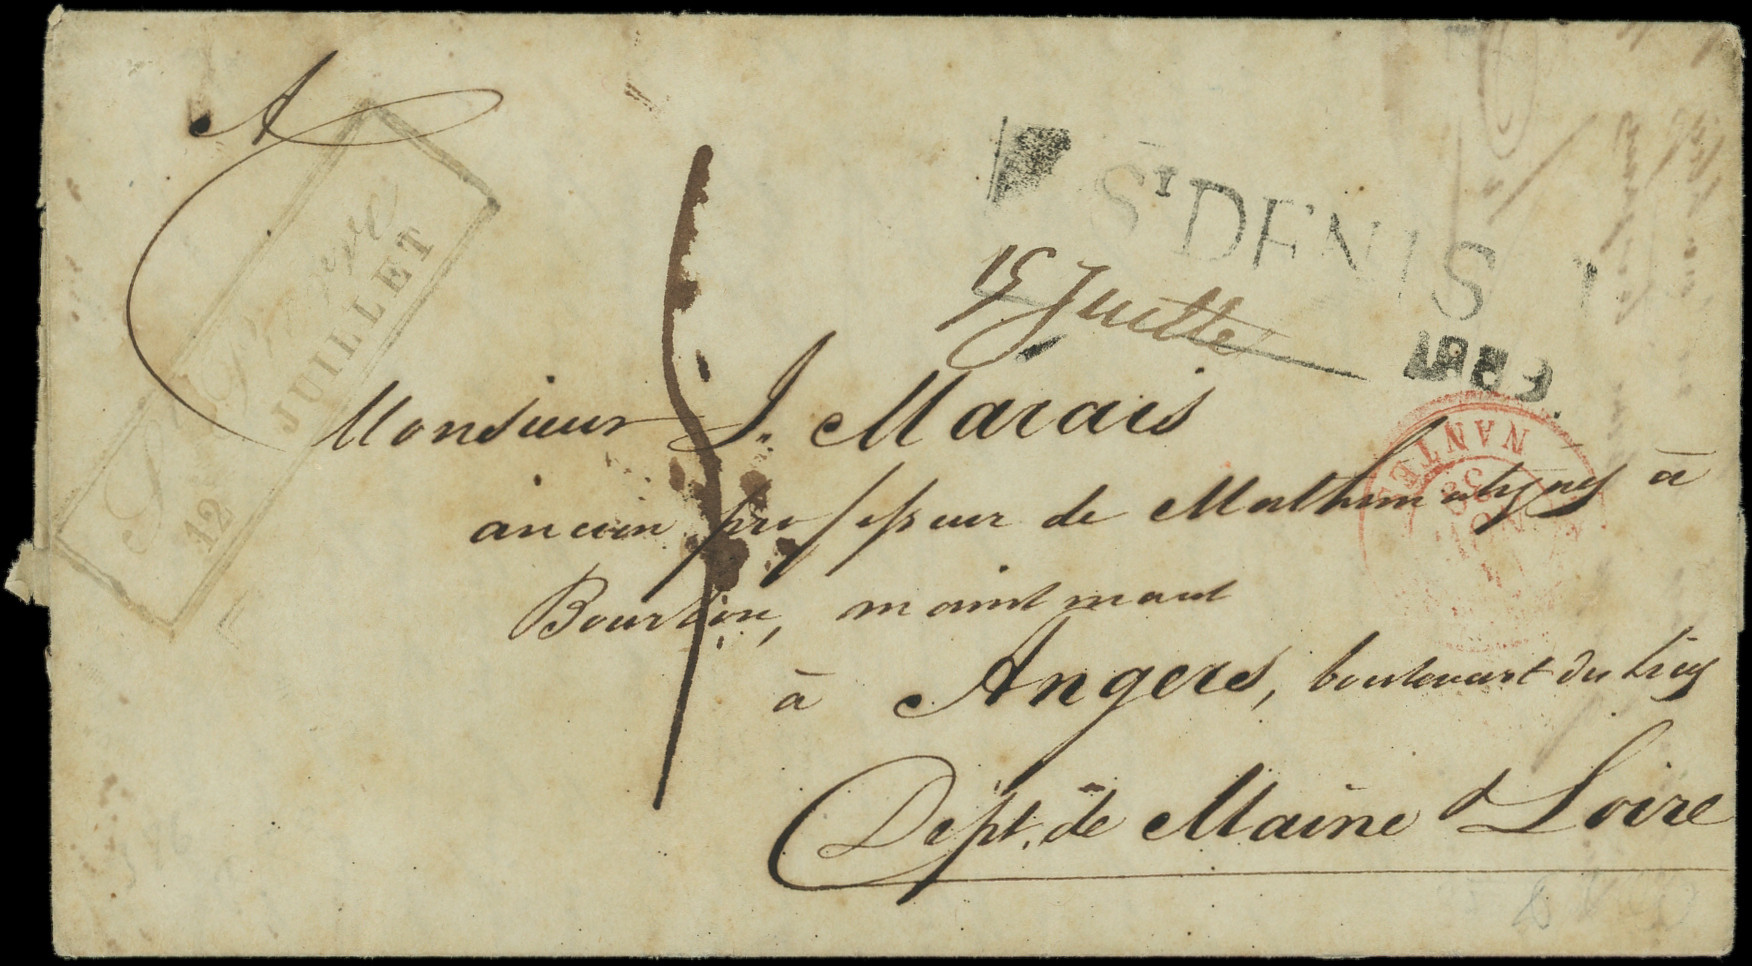 A
St Pierre
12 JUILLET
St DENIS
15 Juillet
Monsieur J. Marais
ancien professeur de Mathématiques à
Bourbon, maintenant
à Angers, boulevart du
Dépt. de Maine & Loire
NANTES